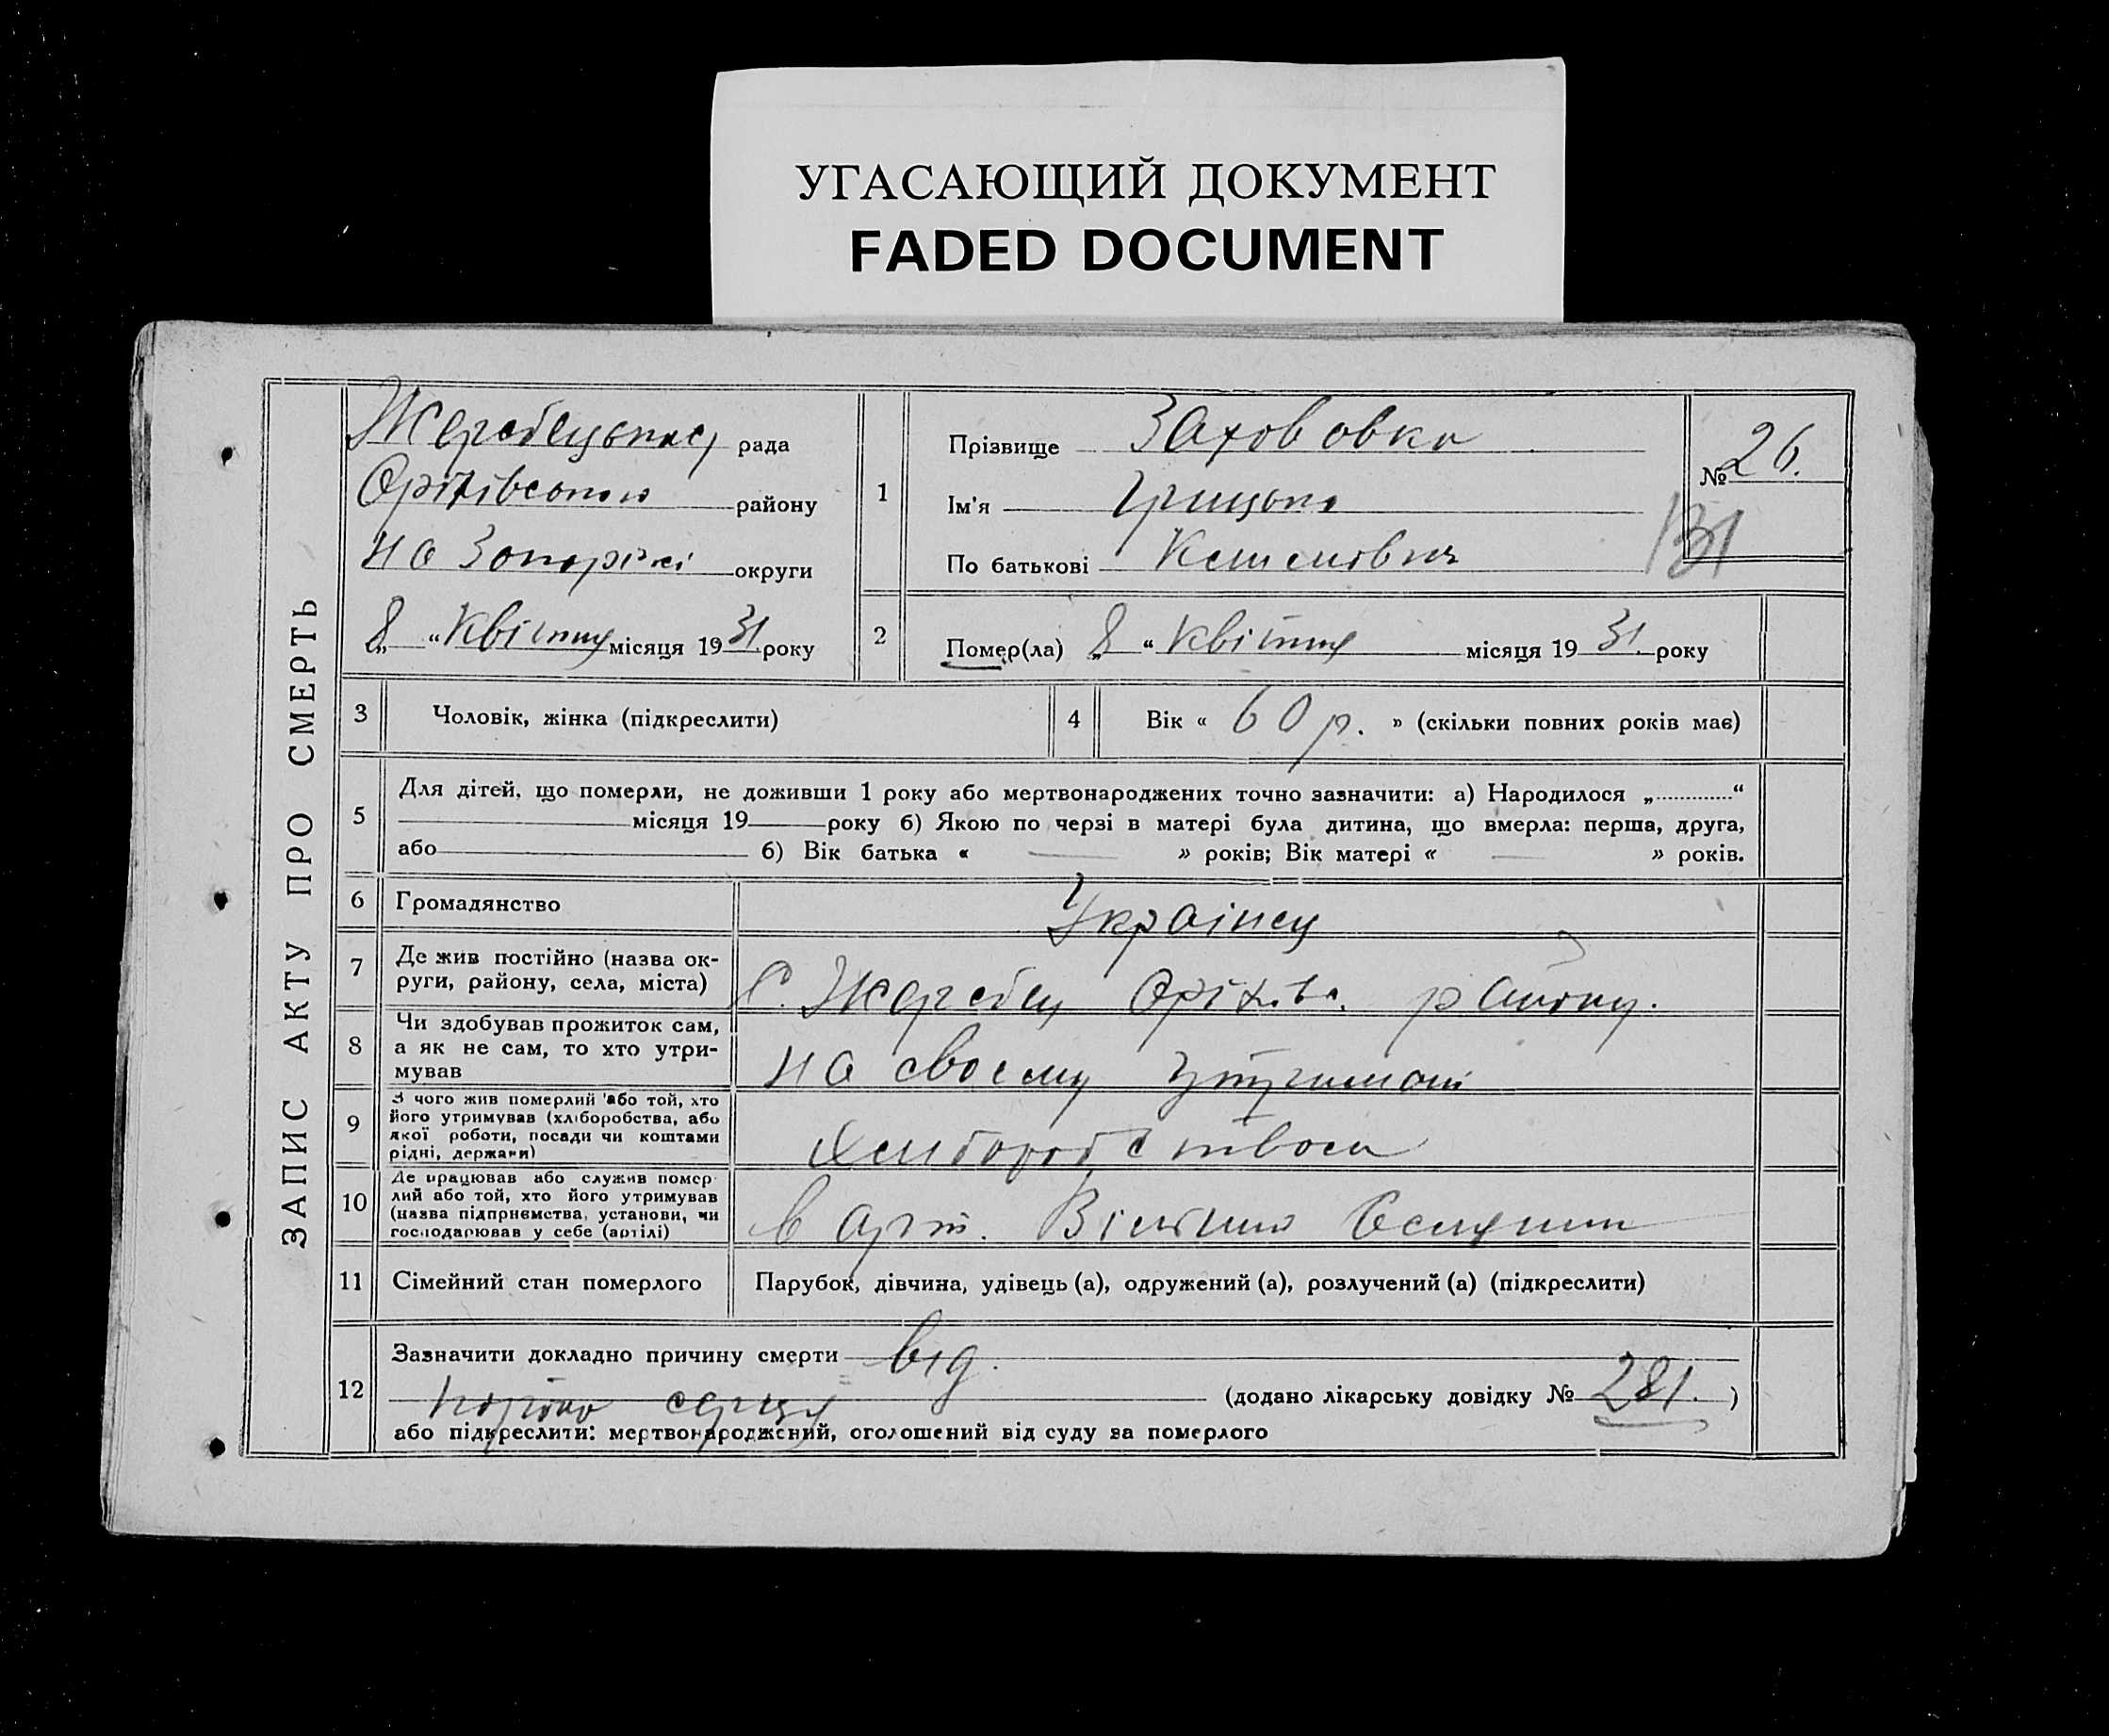 УГАСАЮЩИЙ ДОКУМЕНТ
FADED DOCUMENT
ЗАПИС АКТУ ПРО СМЕРТЬ
рада
Оріхівського району
на Запоріжжі округи
„ 8 “ Квітня місяця 19 31 року
1
Прізвище
Ім'я Грицько
По батькові
№ 26.
131
2
Помер(ла) „ 8 “ Квітня місяця 19 31. року
3
Чоловік, жінка (підкреслити)
4
Вік « 60 р. » (скільки повних років має)
5
Для дітей, що померли, не доживши 1 року або мертвонароджених точно зазначити: а) Народилося „ “
місяця 19 року б) Якою по черзі в матері була дитина, що вмерла: перша, друга,
або б) Вік батька « — » років; Вік матері « — » років.
6
Громадянство
Українец
7
Де жив постійно (назва ок-
руги, району, села, міста)
С. Жеребец Оріхівс. району.
8
Чи здобував прожиток сам,
а як не сам, то хто утри-
мував
на своему утриманні
9
З чого жив померлий або той, хто
його утримував (хліборобства, або
якої роботи, посади чи коштами
рідні, держави)
Хлиборобством
10
Де працював або служив помер-
лий або той, хто його утримував
(назва підприємства, установи, чи
господарював у себе (артілі)
в арт.
11
Сімейний стан померлого
Парубок, дівчина, удівець (а), одружений (а), розлучений (а) (підкреслити)
12
Зазначити докладно причину смерти від
серця (додано лікарську довідку № 281. )
або підкреслити: мертвонароджений, оголошений від суду за померлого